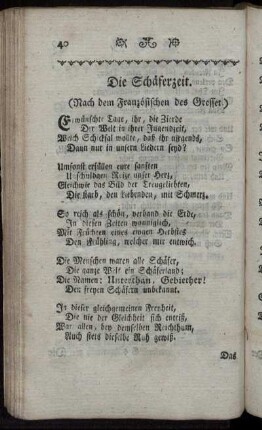 40
Die Schäferzeit.
(Nach dem Französischen des Gresset.)
Erwünschte Tage, ihr, die Zierde
Der Welt in ihrer Jugendzeit,
Welch Schicksal wollte, daß ihr nirgends,
Dann nur in unsern Liedern seyd?
Umsonst erfüllen eure sanften
Unschuldgen Reize unser Herz,
Gleichwie das Bild der Treugeliebten,
Die starb, den Liebenden, mit Schmerz.
So reich als schön, verband die Erde,
In diesen Zeiten wonniglich,
Mit Früchten eines ewgen Herbstes
Den Frühling, welcher nie entwich.
Die Menschen waren alle Schäfer,
Die ganze Welt ein Schäferland;
Die Namen: Unterthan, Gebiether!
Den freyen Schäfern unbekannt.
In dieser gleichgemeinen Freyheit,
Die nie der Gleichheit sich entriß,
War allen, bey demselben Reichthum,
Auch stets dieselbe Ruh gewiß.
Das